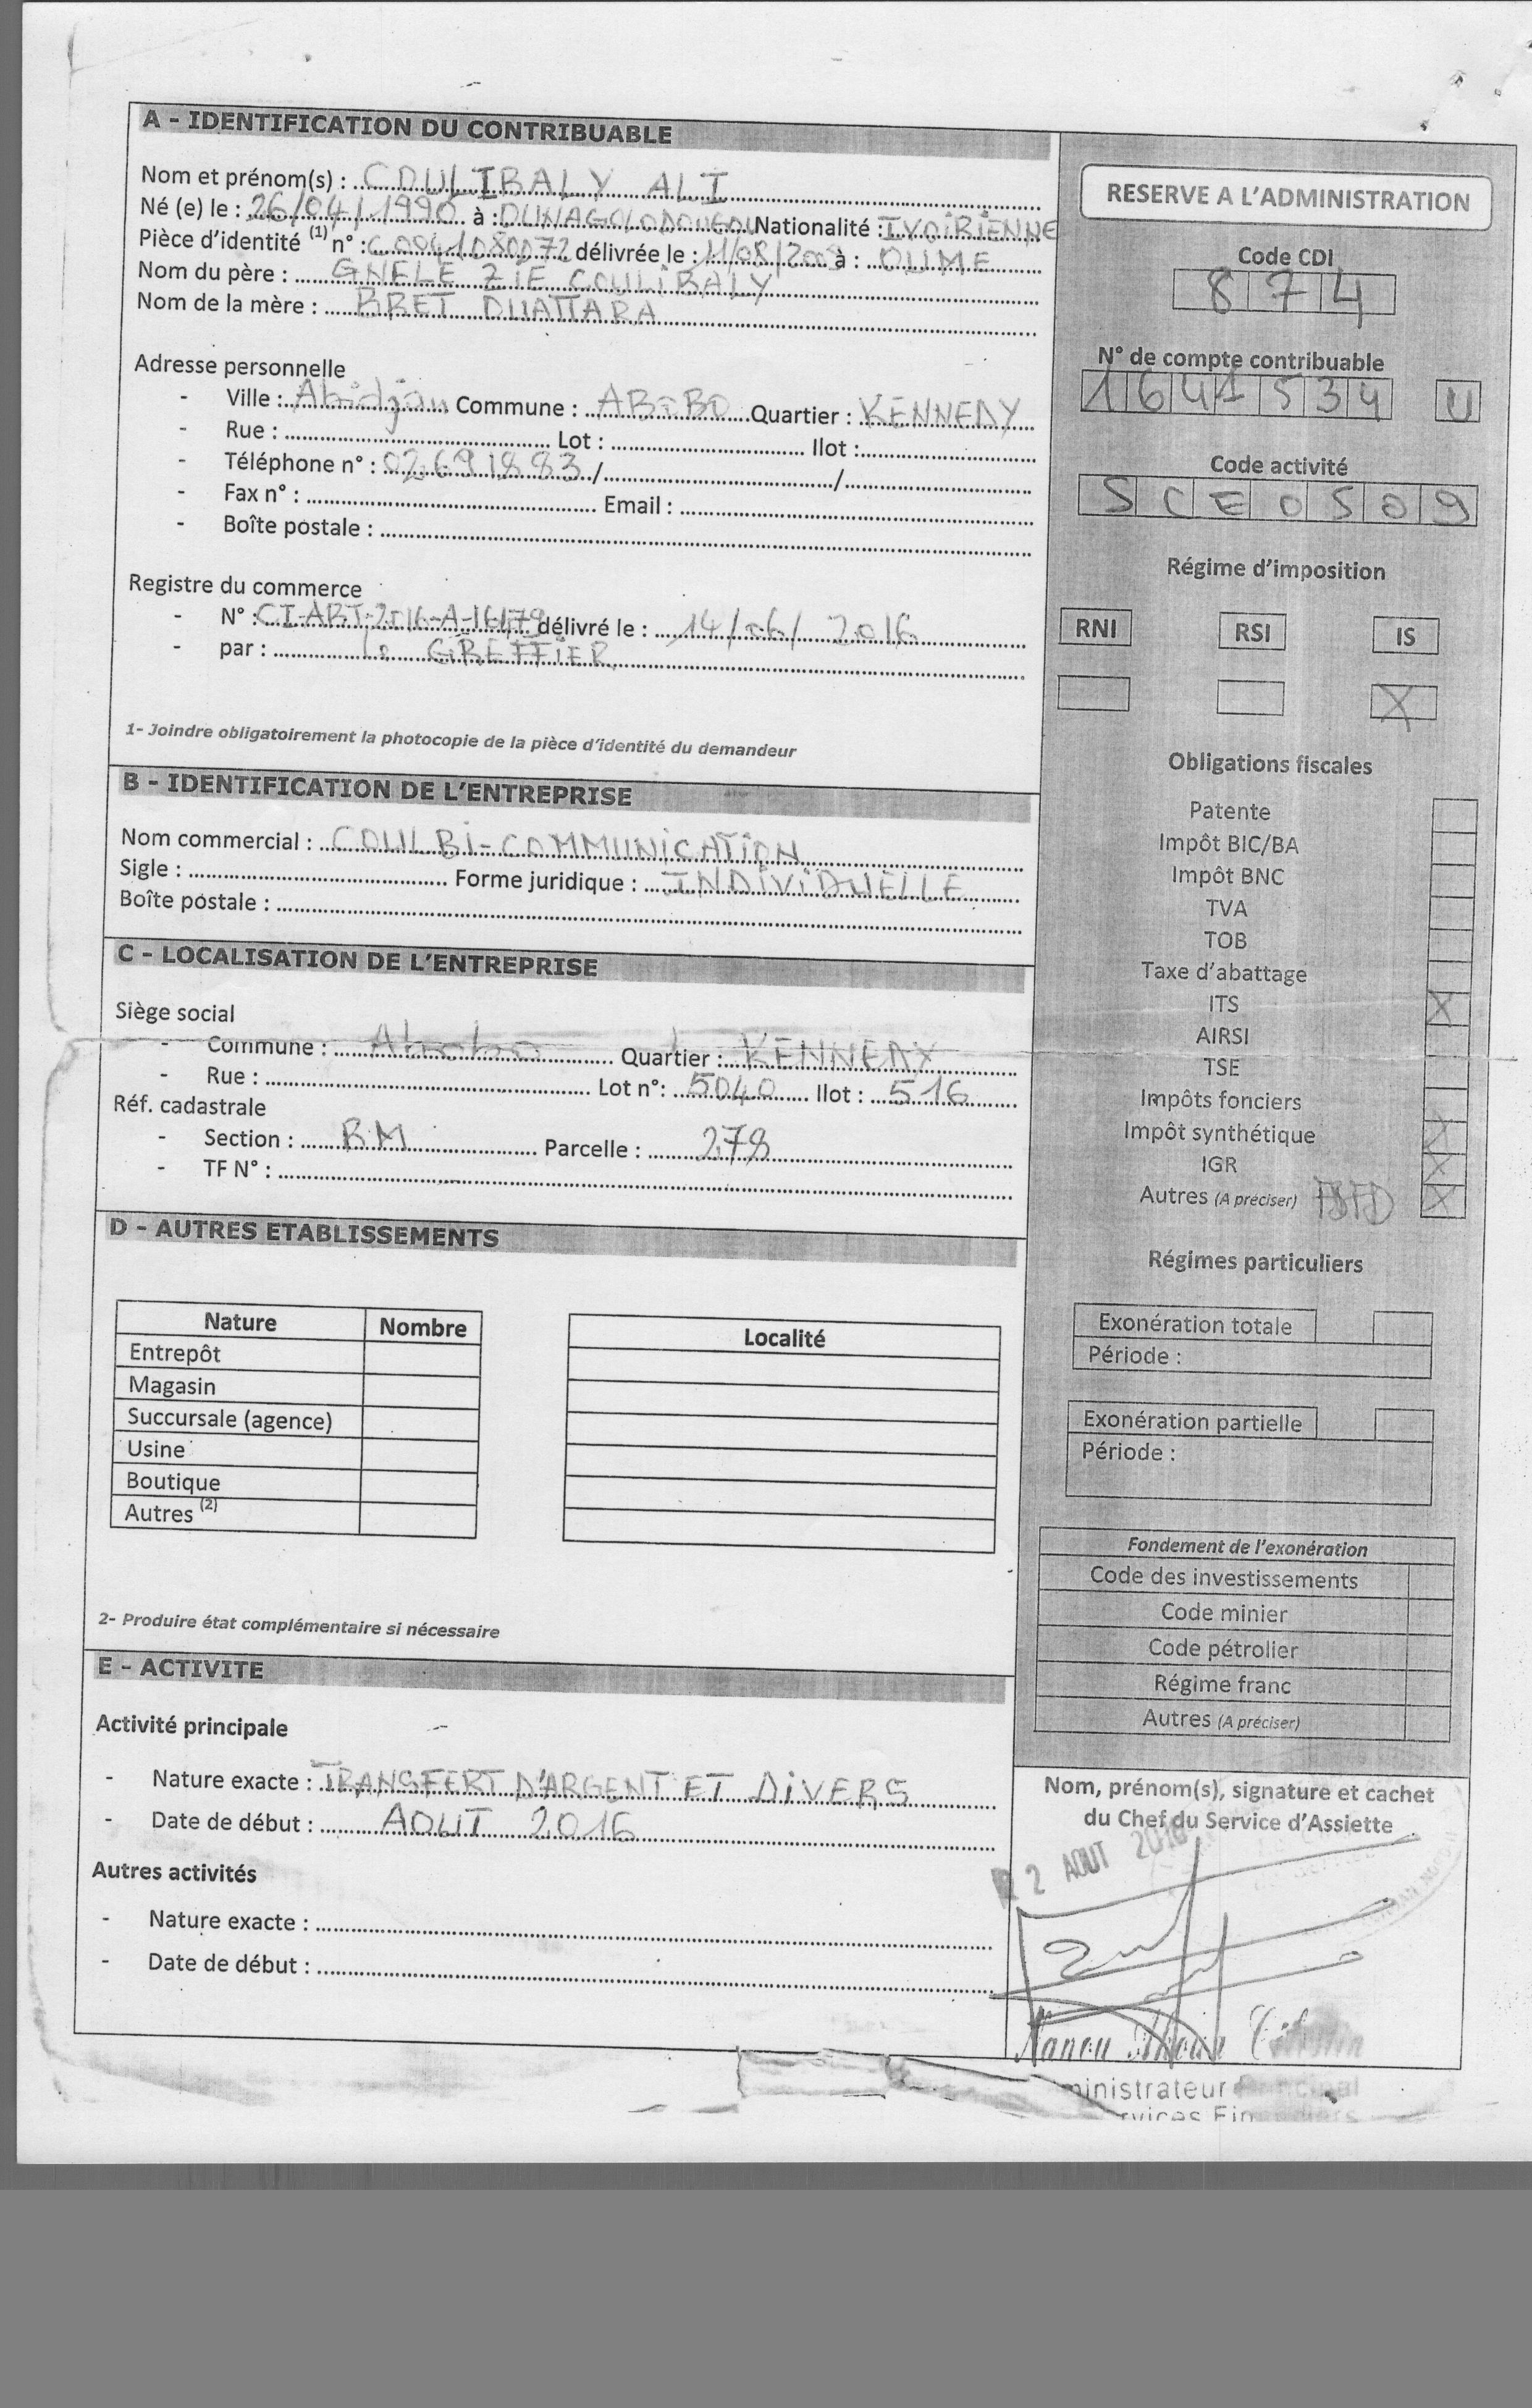 A - IDENTIFICATION DU CONTRIBUABLE
Nom et prénom(s) : COULIBALY ALI
Né (e) le : 26/04/1990 à : OUNAGOLODOUGOU Nationalité : IVOIRIENNE
Pièce d'identité (1) n° : C0041080072 délivrée le : 11/08/2009 à : OUME
Nom du père : GNELE ZIE COULIBALY
Nom de la mère : BRET OUATTARA
Adresse personnelle
- Ville : Abidjan Commune : ABOBO Quartier : KENNEDY
- Rue : Lot : Ilot :
- Téléphone n° : 02691883 / /
- Fax n° : Email :
- Boîte postale :
Registre du commerce
- N° : CI-ABJ-2016-A-16479 délivré le : 14/06/2016
- par : le GREFFIER
1- Joindre obligatoirement la photocopie de la pièce d'identité du demandeur
B - IDENTIFICATION DE L'ENTREPRISE
Nom commercial : COULBI-COMMUNICATION
Sigle : Forme juridique : INDIVIDUELLE
Boîte postale :
C - LOCALISATION DE L'ENTREPRISE
Siège social
- Commune : Abobo Quartier : KENNEDY
- Rue : Lot n° : 5040 Ilot : 516
Réf. cadastrale
- Section : BM Parcelle : 278
- TF N° :
D - AUTRES ETABLISSEMENTS
Nature Nombre Localité
Entrepôt
Magasin
Succursale (agence)
Usine
Boutique
Autres (2)
2- Produire état complémentaire si nécessaire
E - ACTIVITE
Activité principale
- Nature exacte : TRANSFERT D'ARGENT ET DIVERS
- Date de début : AOUT 2016
Autres activités
- Nature exacte :
- Date de début :
RESERVE A L'ADMINISTRATION
Code CDI
874
N° de compte contribuable
1641534 U
Code activité
SCE0509
Régime d'imposition
RNI RSI IS
X
Obligations fiscales
Patente
Impôt BIC/BA
Impôt BNC
TVA
TOB
Taxe d'abattage
ITS X
AIRSI
TSE
Impôts fonciers
Impôt synthétique X
IGR X
Autres (A préciser) X
Régimes particuliers
Exonération totale
Période :
Exonération partielle
Période :
Fondement de l'exonération
Code des investissements
Code minier
Code pétrolier
Régime franc
Autres (A préciser)
Nom, prénom(s), signature et cachet
du Chef du Service d'Assiette
2 AOUT 2016
ministrateur Principal
rvices Financiers